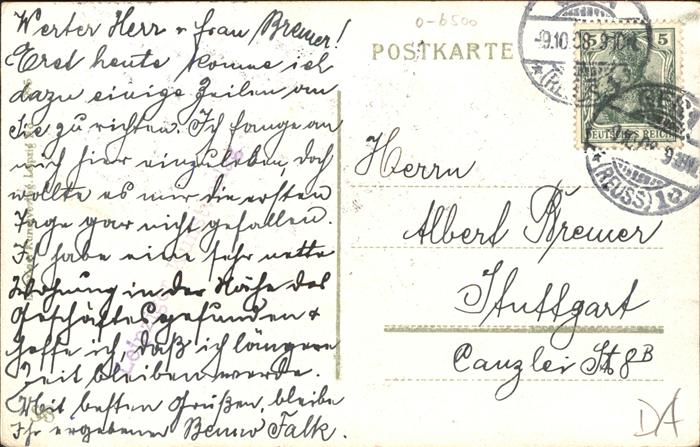 Werter Herr u Frau Bremer!
Erst heute komme ich
dazu einige Zeilen an
Sie zu richten. Ich fange an
mich hier einzuleben, doch
wollte es mir die ersten
Tage gar nicht gefallen.
Ich habe eine sehr nette
Wohnung in der Nähe des
Geschäftes gefunden &
hoffe ich, daß ich längere
Zeit bleiben werde.
Mit besten Grüßen, bleibe
Ihr ergebener Benno Falk.
0-6500
POSTKARTE
9.10.08
(REUSS)
5 5
DEUTSCHES REICH
(REUSS) 1c
Herrn
Albert Bremer
Stuttgart
Canzlei St 8B
DA